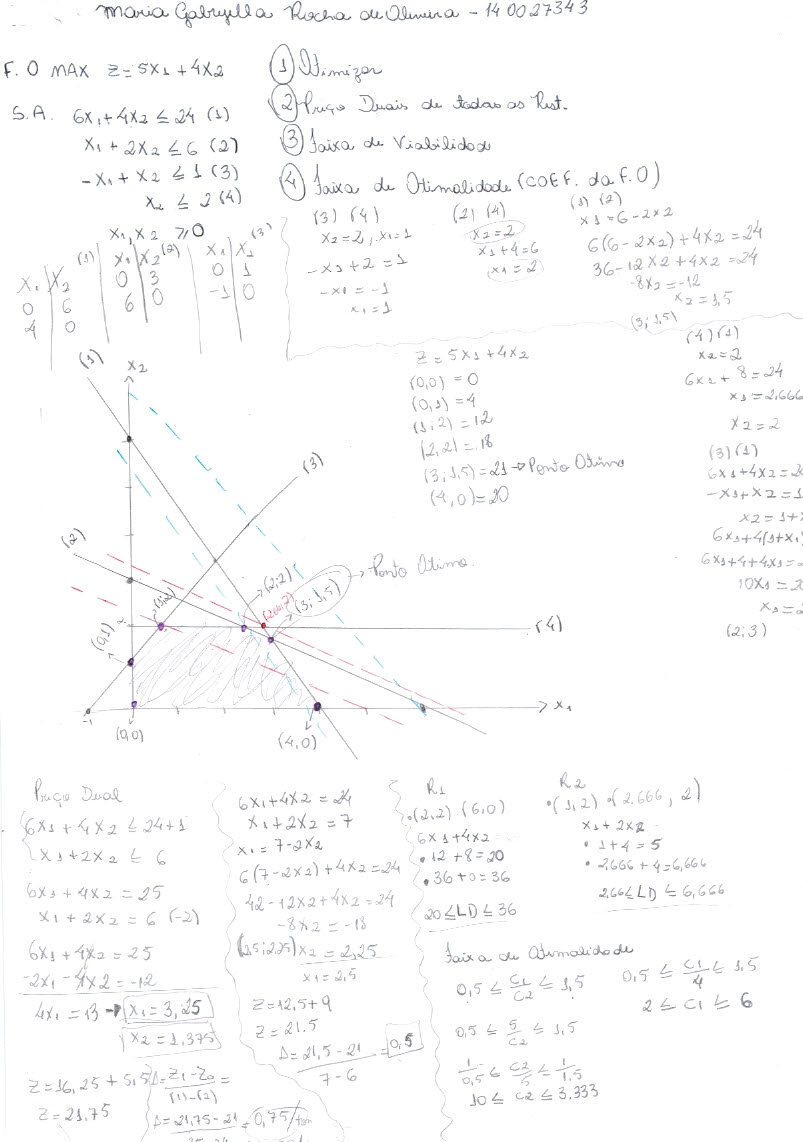 Maria Gabryella Rocha de Oliveira - 140027343
F.O MAX Z = 5X1 + 4X2
S.A. 6X1 + 4X2 ≤ 24 (1)
X1 + 2X2 ≤ 6 (2)
-X1 + X2 ≤ 1 (3)
X2 ≤ 2 (4)
X1, X2 ≥ 0
① Otimizar
② Preço Duais de todas as Rest.
③ Faixa de Viabilidade
④ Faixa de Otimalidade (COEF. da F.O)
X1 X2 (1)
0 6
4 0
X1 X2 (2)
0 3
6 0
X1 X2 (3)
0 1
-1 0
(3) (4)
X2 = 2, X1 = 1
-X1 + 2 = 1
-X1 = -1
X1 = 1
(2) (4)
X2 = 2
X1 + 4 = 6
X1 = 2
(1) (2)
X1 = 6 - 2X2
6(6 - 2X2) + 4X2 = 24
36 - 12X2 + 4X2 = 24
-8X2 = -12
X2 = 1,5
(3; 1,5)
(4) (1)
X2 = 2
6X1 + 8 = 24
X1 = 2,666
X2 = 2
(3) (1)
6X1 + 4X2 = 2
-X1 + X2 = 1
X2 = 1 + X
6X1 + 4(1 + X1)
6X1 + 4 + 4X1 =
10X1 = 2
X1 = 2
(2; 3)
Z = 5X1 + 4X2
(0,0) = 0
(0,1) = 4
(1; 2) = 12
(2,2) = 18
(3; 1,5) = 21 → Ponto Ótimo
(4,0) = 20
(1)
X2
(3)
(2)
(1;2)
(2;2)
(2,66;2)
(3; 1,5)
→ Ponto Ótimo.
(0,1)
2
1
(4)
-1
X1
(0,0)
(4,0)
Preço Dual
6X1 + 4X2 ≤ 24+1
X1 + 2X2 ≤ 6
6X1 + 4X2 = 25
X1 + 2X2 = 6 (-2)
6X1 + 4X2 = 25
-2X1 - 4X2 = -12
4X1 = 13 → X1 = 3,25
X2 = 1,375
Z = 16,25 + 5,5
Z = 21,75
Δ = Z1 - Z0 =
(1)-(2)
Δ = 21,75 - 21 = 0,75/
6X1 + 4X2 = 24
X1 + 2X2 = 7
X1 = 7 - 2X2
6(7 - 2X2) + 4X2 = 24
42 - 12X2 + 4X2 = 24
-8X2 = -18
(2,5; 2,25) X2 = 2,25
X1 = 2,5
Z = 12,5 + 9
Z = 21.5
Δ = 21,5 - 21 = 0,5
7 - 6
R1
• (2,2) . (6,0)
6X1 + 4X2
• 12 + 8 = 20
• 36 + 0 = 36
20 ≤ LD ≤ 36
R2
• (1,2) • (2,666, 2)
X1 + 2X2
• 1 + 4 = 5
• 2,666 + 4 = 6,666
2,66 ≤ LD ≤ 6,666
Faixa de Otimalidade
0,5 ≤ C1/C2 ≤ 1,5
0,5 ≤ 5/C2 ≤ 1,5
1/0,5 ≤ C2/5 ≤ 1/1.5
10 ≤ C2 ≤ 3.333
0,5 ≤ C1/4 ≤ 1,5
2 ≤ C1 ≤ 6